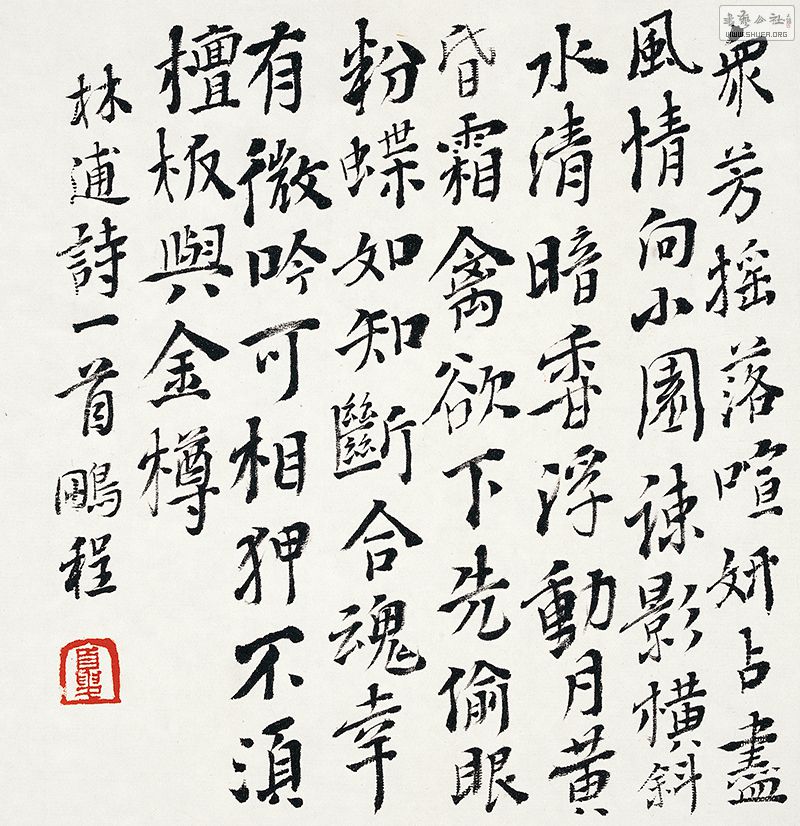 衆芳搖落喧妍占盡
風情向小園疎影橫斜
水清暗香浮動月黃
昏霜禽欲下先偷眼
粉蝶如知斷合魂幸
有微吟可相狎不須
檀板與金樽
林逋詩一首鵬程
WWW.SHUFA.ORG